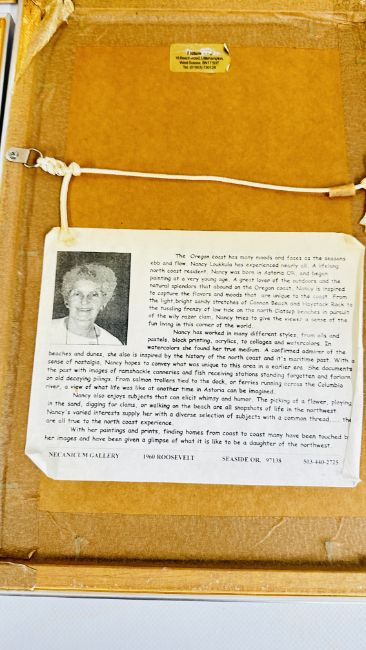 West Sussex
The Oregon coast has many moods and faces as the seasons
ebb and flow. Nancy Loukkula has experienced nearly all. A lifelong
north coast resident, Nancy was born in Astoria OR, and began
painting at a very young age. A great lover of the outdoors and the
natural splendors that abound on the Oregon coast, Nancy is inspired
to capture the flavors and moods that are unique to the coast. From
the light,bright sandy stretches of Cannon Beach and Haystack Rock to
the tussling frenzy of low tide on the north Clatsop beaches in pursuit
of the wily razor clam, Nancy tries to give the viewer a sense of the
fun living in this corner of the world.
Nancy has worked in many different styles, from oils and
pastels, block printing, acrylics, to collages and watercolors. In
watercolors she found her true medium. A confirmed admirer of the
beaches and dunes, she also is inspired by the history of the north coast and it's maritime past. With a
sense of nostalgia, Nancy hopes to convey what was unique to this area in a earlier era. She documents
the past with images of ramshackle canneries and fish receiving stations standing forgotten and forlorn
on old decaying pilings. From salmon trollers tied to the dock, or ferries running across the Columbia
river, a view of what life was like at another time in Astoria can be imagined.
Nancy also enjoys subjects that can elicit whimsy and humor. The picking of a flower, playing
in the sand, digging for clams, or walking on the beach are all snapshots of life in the northwest.
Nancy's varied interests supply her with a diverse selection of subjects with a common thread..... they
are all true to the north coast experience.
With her paintings and prints, finding homes from coast to coast many have been touched b
her images and have been given a glimpse of what it is like to be a daughter of the northwest.
NECANICUM GALLERY 1960 ROOSEVELT SEASIDE OR. 97138 503-440-2725